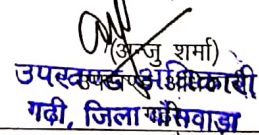 (अन्जु शर्मा)
उपखण्ड अधिकारी
गढ़ी, जिला बाँसवाड़ा